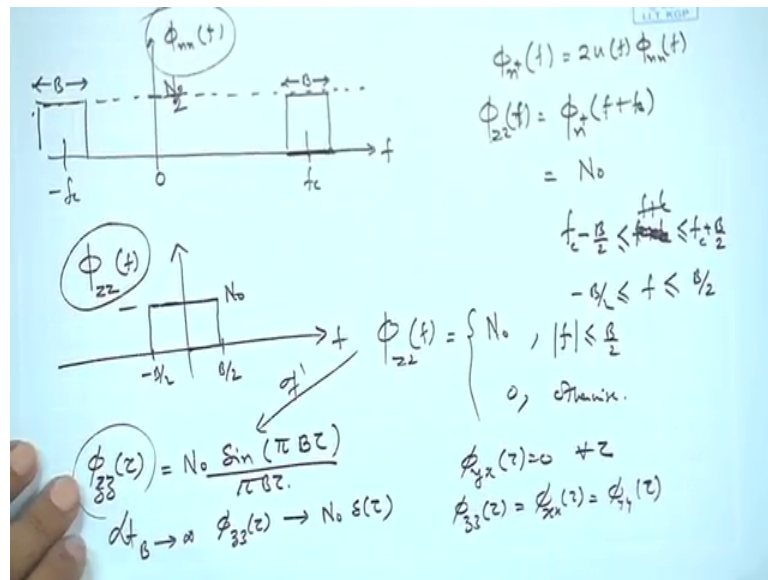 IIT KGP
Φnn(f)
←B→
N₀/2
←B→
-fc
0
fc
f
Φn⁺(f) = 2u(f) Φnn(f)
Φzz(f) = Φn⁺(f+fc)
= N₀
f+fc
fc - B/2 ≤ ≤ fc + B/2
-B/2 ≤ f ≤ B/2
Φzz(f)
N₀
-B/2
B/2
f
Φzz(f) = { N₀ , |f| ≤ B/2
0, otherwise.
φzz(τ) = N₀ Sin(πBτ)/πBτ.
φyx(τ)=0 ∀τ
Lt B→∞ φzz(τ) → N₀ δ(τ)
φzz(τ) = φxx(τ) = φyy(τ)